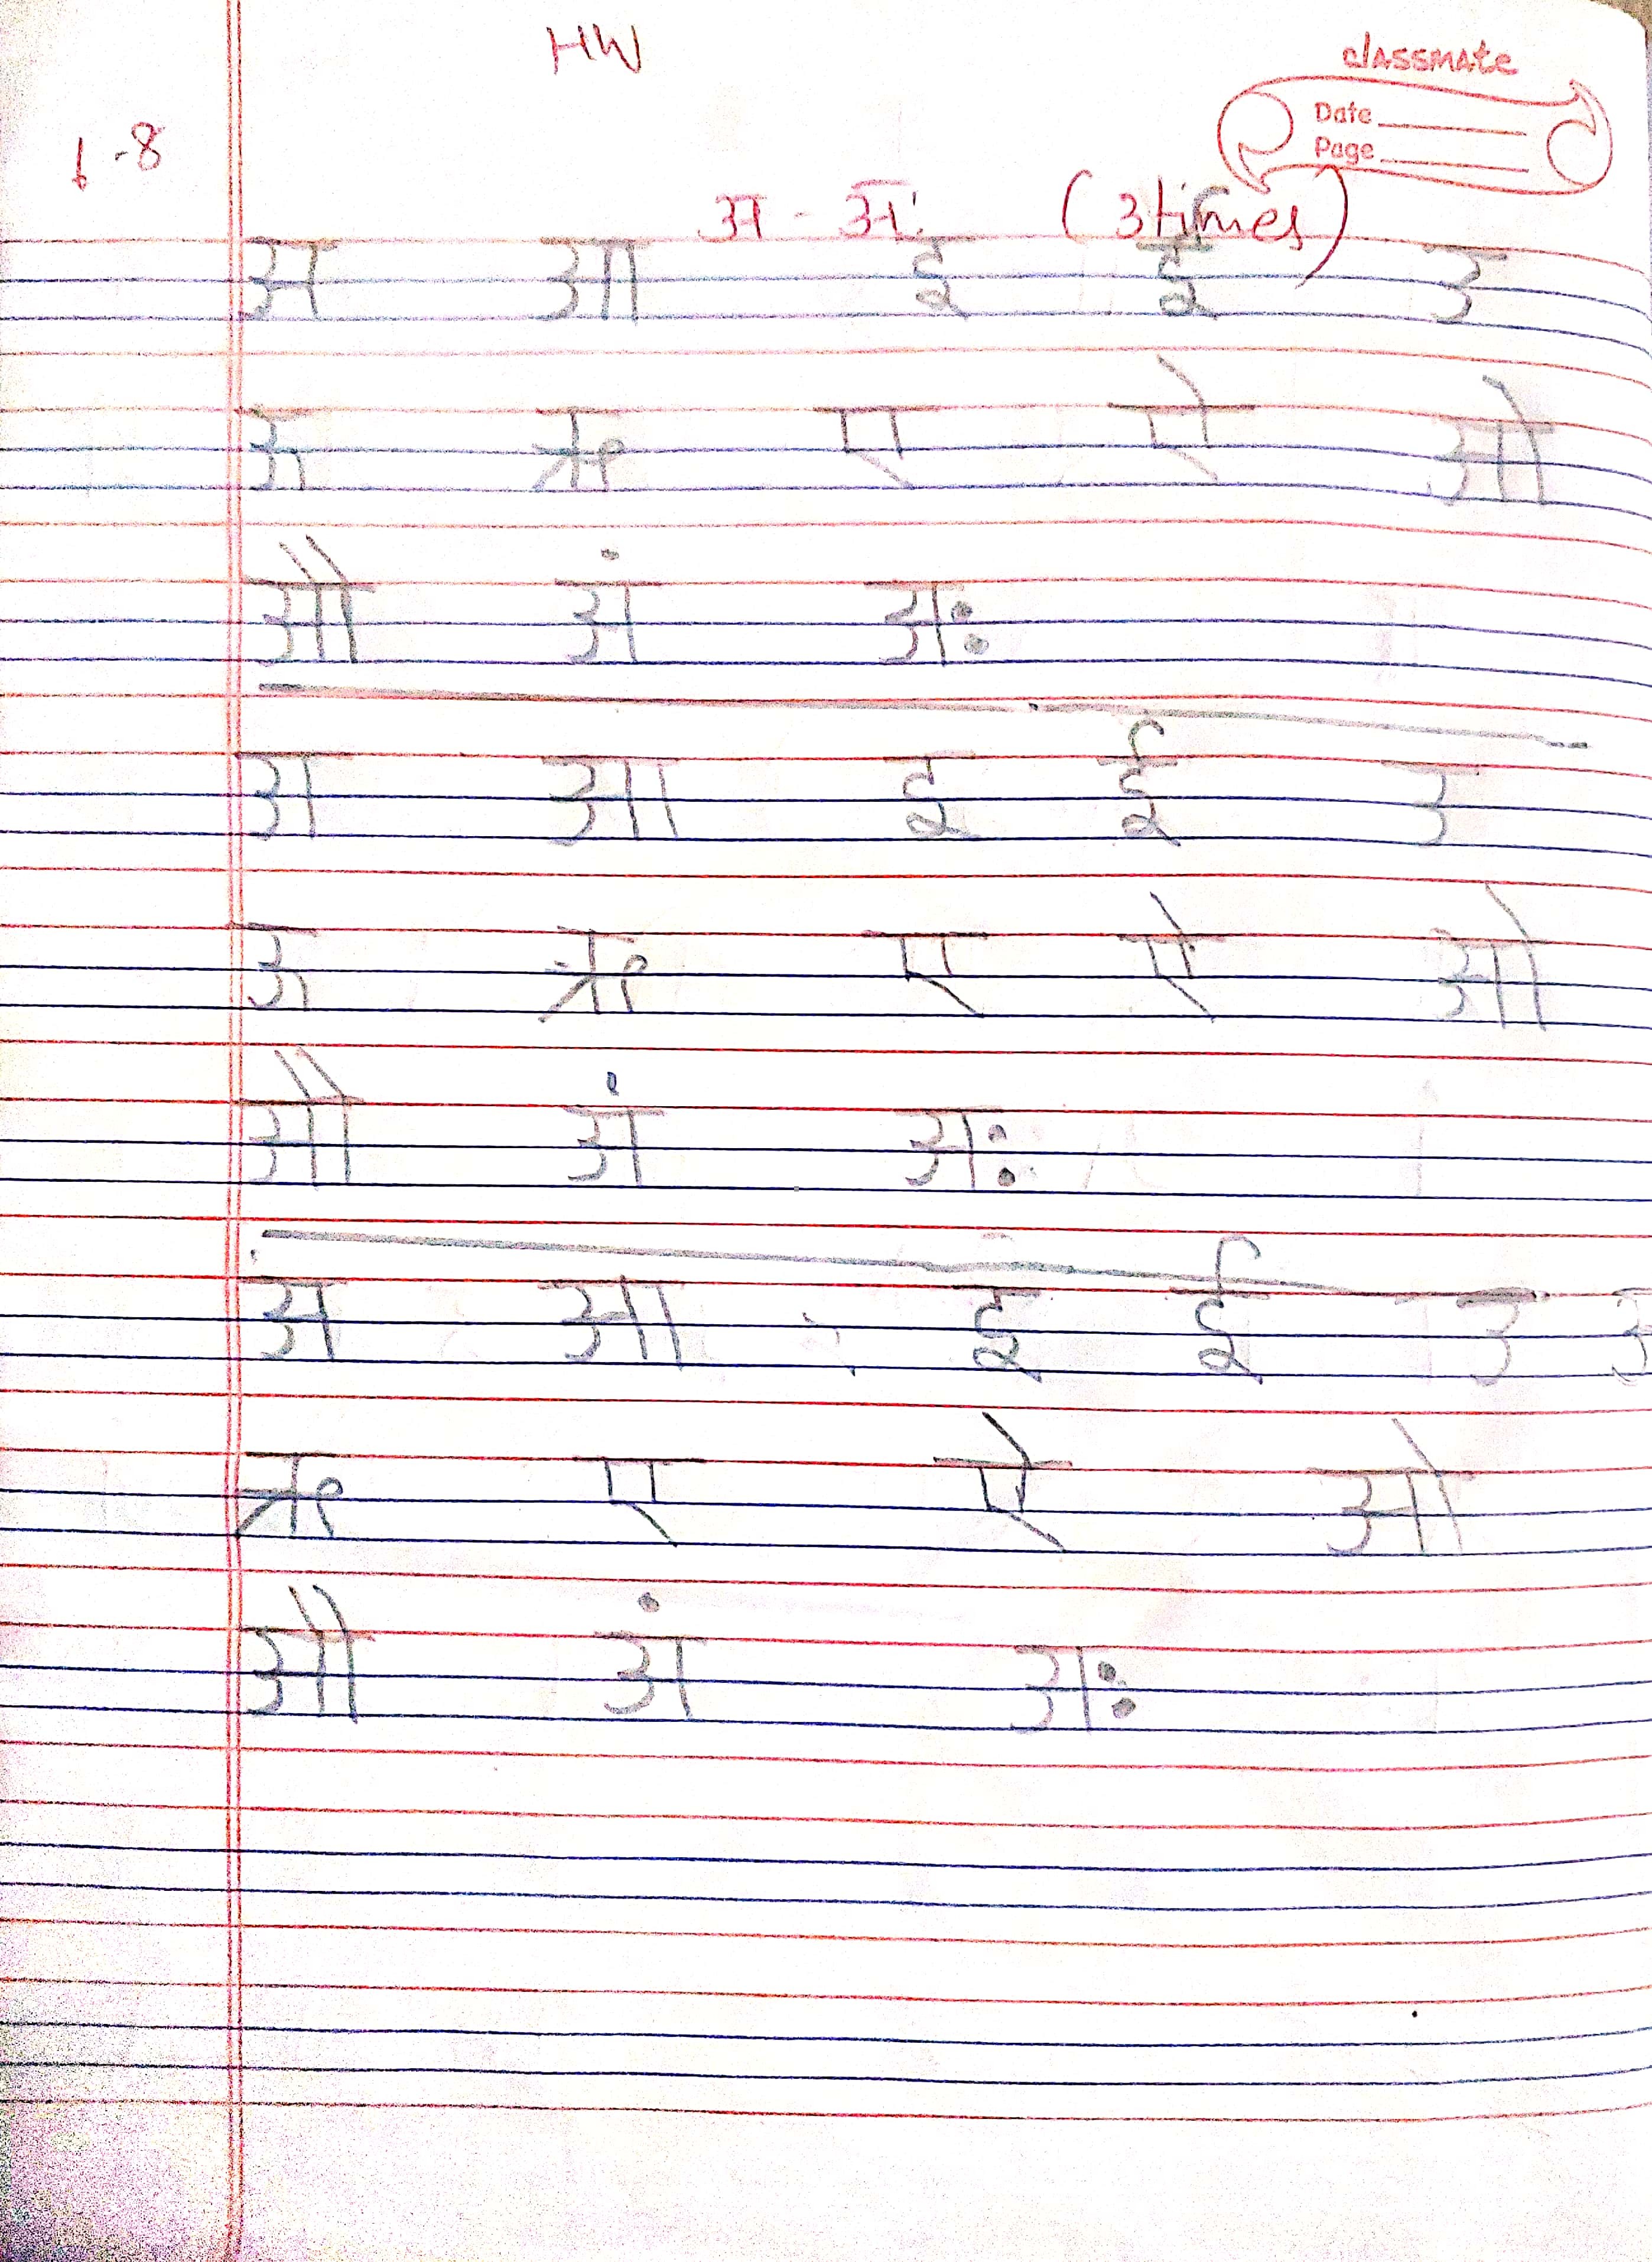 HW
classmate
Date
Page
1-8
अ - अः (3 times)
अ आ इ ई उ
ऊ ऋ ए ऐ ओ
औ अं अः
अ आ इ ई उ
ऊ ऋ ए ऐ ओ
औ अं अः
अ आ इ ई उ
ऋ ए ऐ ओ
औ अं अः